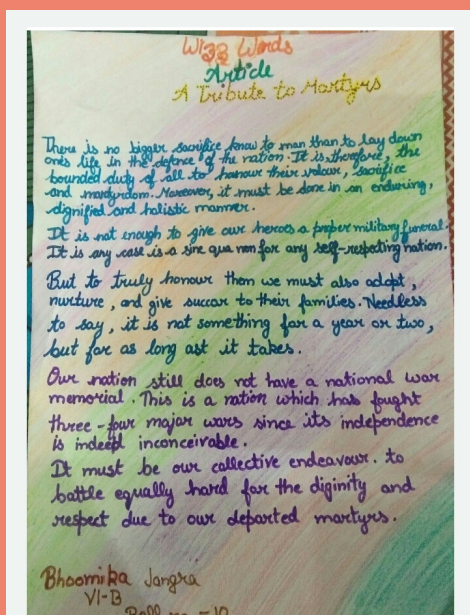 Wizz Words
Article
A Tribute to Martyrs
There is no bigger sacrifice know to man than to lay down
ones life in the defence of the nation. It is therefore, the
bounded duty of all to honour their valour, sacrifice
and martyrdom. Moreover, it must be done in an enduring,
dignified and holistic manner.
It is not enough to give our heroes a proper military funeral.
It is any case is a sine qua non for any self-respecting nation.
But to truly honour them we must also adopt,
nurture, and give succor to their families. Needless
to say, it is not something for a year or two,
but for as long ast it takes.
Our nation still does not have a national war
memorial. This is a nation which has fought
three-four major wars since its independence
is indeed inconceivable.
It must be our collective endeavour. to
battle equally hard for the diginity and
respect due to our departed martyrs.
Bhoomika Jangra
VI-B
Roll no - 10